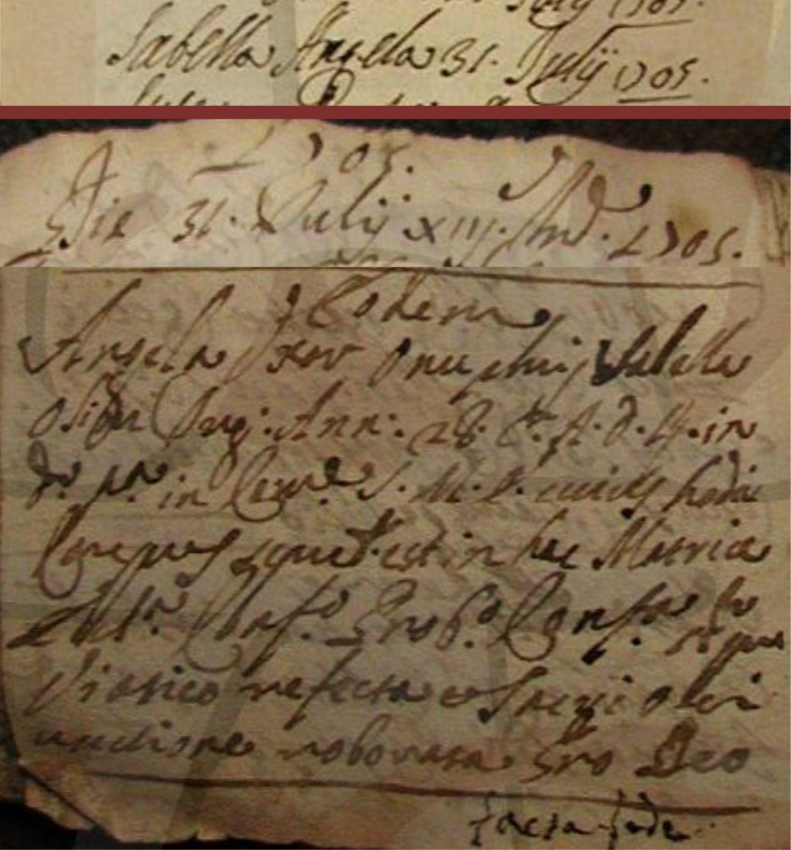 July 1705.
Isabella Angela 31. Julij 1705.
1705.
Die 31. Julij XIII. Ind. 1705.
Eodem
Angela Uxor Onuphrij Isabella
olim Jug: Ann: 28. C. A. d. H. in
d. in Com. S. M. E. cuius hodie
Corpus sepult. est in hac Matrice
Conf. Prob. Conf.
Viatico refecta et Sacri olei
unctione roborata pro Deo
facta fede